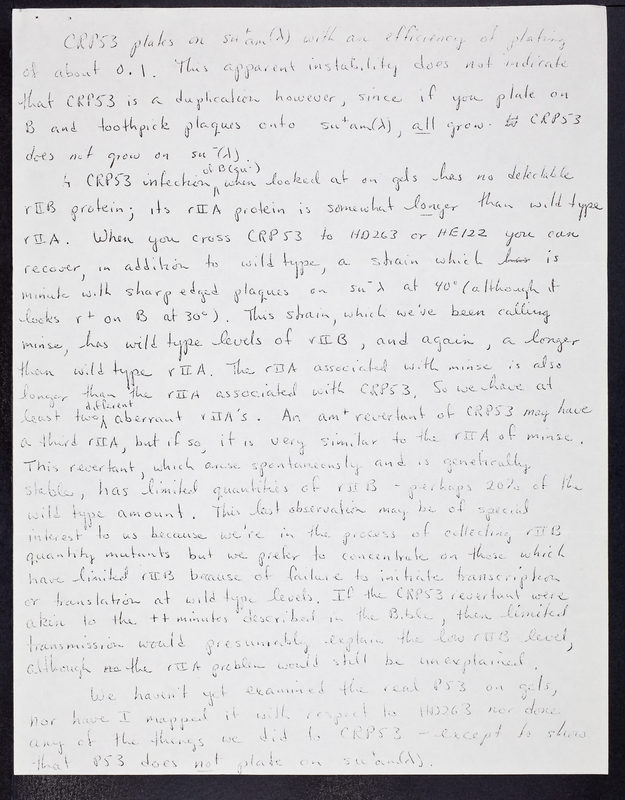 CRP53 plates on su⁺am(λ) with an efficiency of plating
of about 0.1. This apparent instability does not indicate
that CRP53 is a duplication however, since if you plate on
B and toothpick plaques onto su⁺am(λ), all grow. CRP53
does not grow on su⁻(λ).
CRP53 infection of B(su⁻) when looked at on gels has no detectable
rIIB protein; its rIIA protein is somewhat longer than wild type
rIIA. When you cross CRP53 to HD263 or HE122 you can
recover, in addition to wild type, a strain which has is
minute with sharp edged plaques on su⁻λ at 40° (although it
looks r⁺ on B at 30°). This strain, which we've been calling
minse, has wild type levels of rIIB, and again, a longer
than wild type rIIA. The rIIA associated with minse is also
longer than the rIIA associated with CRP53. So we have at
least two different aberrant rIIA's. An am⁺ revertant of CRP53 may have
a third rIIA, but if so, it is very similar to the rIIA of minse.
This revertant, which arose spontaneously and is genetically
stable, has limited quantities of rIIB - perhaps 20% of the
wild type amount. This last observation may be of special
interest to us because we're in the process of collecting rIIB
quantity mutants but we prefer to concentrate on those which
have limited rIIB because of failure to initiate transcription
or translation at wild type levels. If the CRP53 revertant were
akin to the tt minutes described in the Bible, then limited
transmission would presumably explain the low rIIB level,
although the rIIA problem would still be unexplained.
We haven't yet examined the real P53 on gels,
nor have I mapped it with respect to HD263 nor done
any of the things we did to CRP53 - except to show
that P53 does not plate on su⁺am(λ).